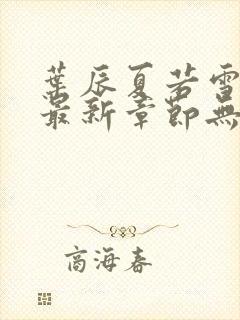 葉辰夏若雪
最新章節無
商海春